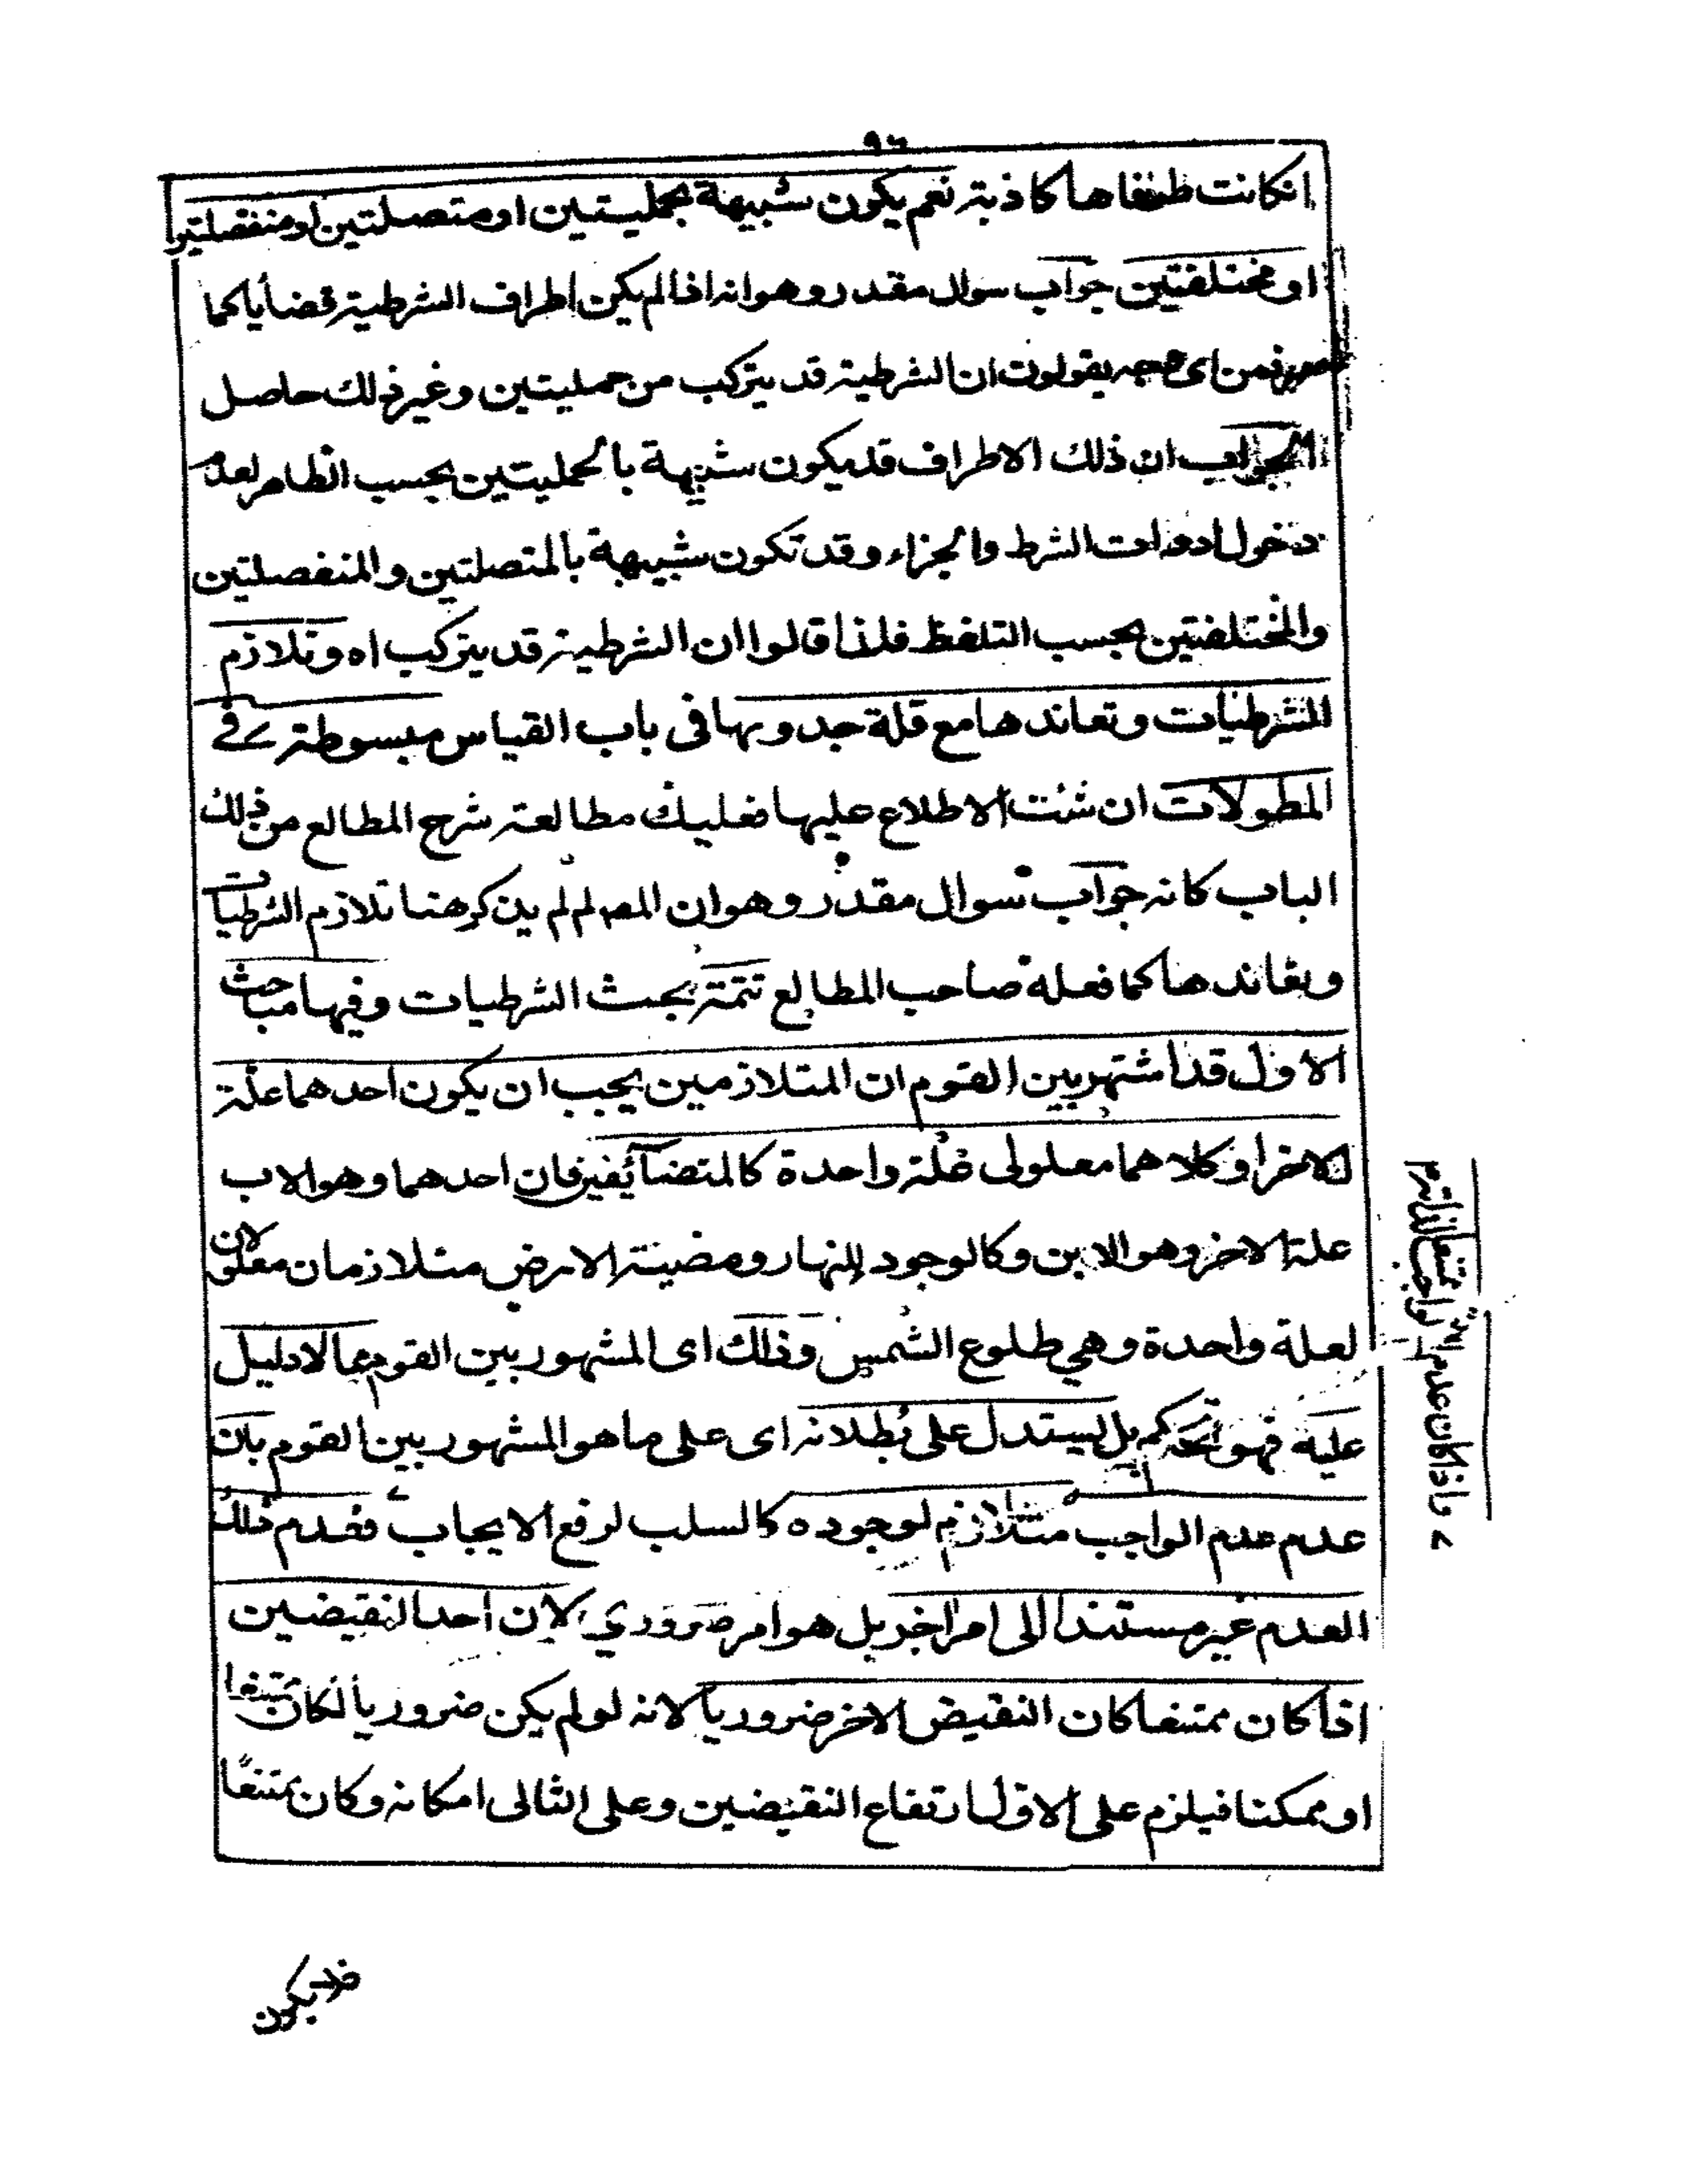 ٩٦
انكانت طرفاها كاذبة نعم يكون شبيهة بحمليتين او متصلتين او منفصلتين
او مختلفتين جواب سوال مقدر وهو انه اذا لم يكن اطراف الشرطية قضايا كما
فمن اى يقولون ان الشرطية قد يتركب من حمليتين وغير ذلك حاصل
الجواب ان ذلك الاطراف قد يكون شبيهة بالحمليتين بحسب الظاهر لعدم
دخول ادوات الشرط والجزاء وقد تكون شبيهة بالمتصلتين والمنفصلتين
والمختلفتين بحسب التلفظ فلذا قالوا ان الشرطية قد يتركب اه وتلازم
الشرطيات وتعاندها مع قلة جدويها فى باب القياس مبسوطة في
المطولات ان شئت الاطلاع عليها فعليك مطالعة شرح المطالع من ذلك
الباب كانه جواب سوال مقدر وهو ان المصـ لم لم يذكر هنا تلازم الشرطيات
وتعاندها كما فعله صاحب المطالع تتمة بحث الشرطيات وفيها مباحث
الاول قد اشتهر بين القوم ان المتلازمين يجب ان يكون احدهما علة
للاخر او كلاهما معلولى علة واحدة كالمتضائفين فان احدهما وهو الاب
علة الاخر وهو الابن وكالوجود للنهار ومضيئة الارض متلازمان معلولان
لعلة واحدة وهي طلوع الشمس وذلك اى المشهور بين القوم مما لا دليل
عليه فهو تحكم بل يستدل على بطلانه اى على ما هو المشهور بين القوم بان
عدم عدم الواجب متلازم لوجوده كالسلب لرفع الايجاب فعدم ذلك
العدم غير مستند الى امر اخر بل هو امر ضروري لان احد النقيضين
اذا كان ممتنعا كان النقيض الاخر ضروريا لانه لو لم يكن ضروريا لكان ممتنعا
او ممكنا فيلزم على الاول ارتفاع النقيضين وعلى الثانى امكانه وكان ممتنعًا
فاذا كان عدم الواجب
يكون